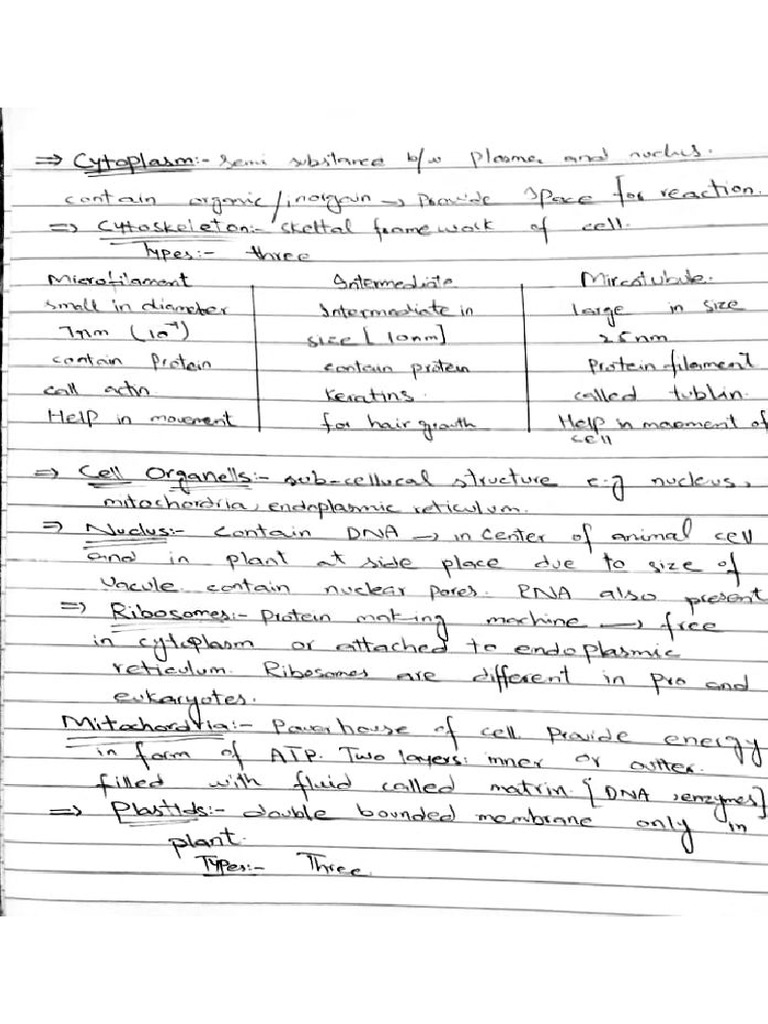 ⇒ Cytoplasm:- semi substance b/w plasma and nuclus.
contain organic/inorgain → provide space for reaction.
⇒ Cytoskeleton:- skeltal framework of cell.
Types:- three
Microfilament | Intermediate | Mircotubule.
small in diameter | Intermediate in | large in size
7nm (10⁻⁹) | size [10nm] | 25nm
contain protein | contain protein | Protein filament
call actin. | keratins. | called tublin.
Help in movement | for hair growth | Help in movment of
cell
⇒ Cell Organells:- sub-cellucal structure e.g nucleus,
mitochordria, endoplasmic reticulum.
⇒ Nuclus:- contain DNA → in center of animal cell
and in plant at side place due to size of
vacule. contain nuclear pores. RNA also present
⇒ Ribosomes:- protein making machine → free
in cytoplasm or attached to endoplasmic
reticulum. Ribosomes are different in pro and
eukaryotes.
Mitochordria:- Powerhouse of cell. provide energy
in form of ATP. Two layers: inner or outter.
filled with fluid called matrix. [DNA, enzymes]
⇒ Plastids:- double bounded membrane only in
plant.
Types:- Three